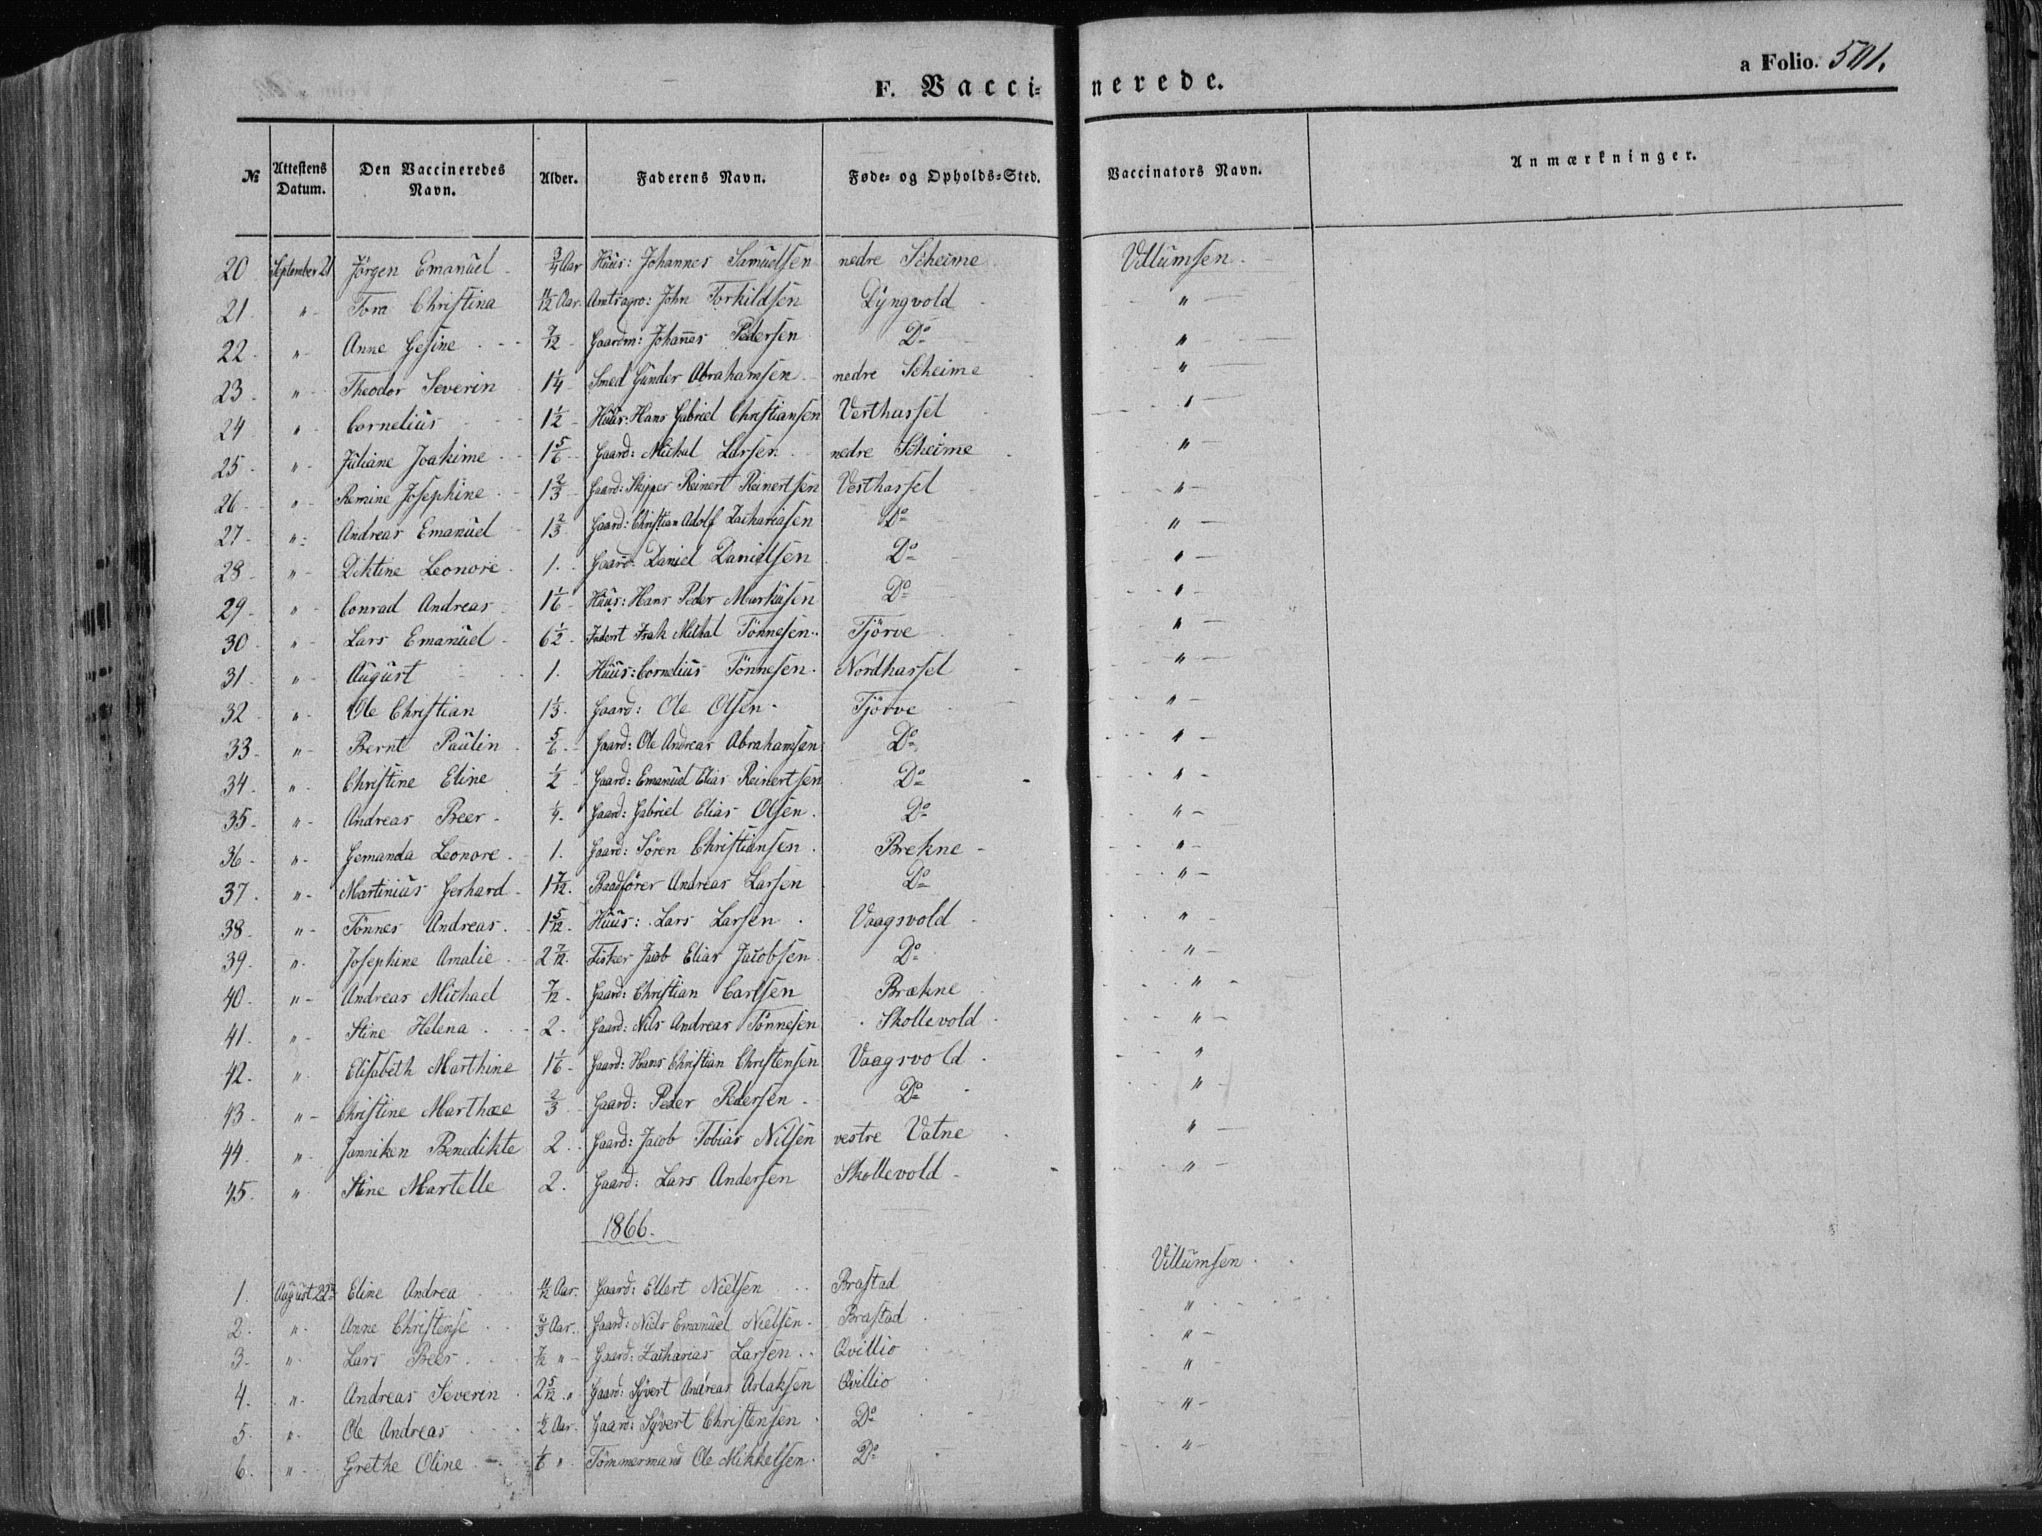 a Folio. 501.
F. Vaccinerede.
№ Attestens Datum. Den Vaccineredes Navn. Alder. Faderens Navn. Føde- og Opholds-Sted. Vaccinators Navn. Anmærkninger.
20 September 21 Jörgen Emanuel 3/4 Aar Huus: Johannes Samuelsen nedre Scheime Villumsen
21 " Tora Christina 11/12 Aar. Amtsagro: John Torkildsen Dÿngvold "
22 " Anne Gesine 7/12 Gaardm: Johanes Pedersen Do "
23 " Theodor Severin 1 1/4 Smed Gunder Abrahamsen nedre Scheime "
24 " Cornelius 1 1/2 Huus: Hans Gabriel Christiansen Vesthassel "
25 " Juliane Joakime 1 5/6 Gaard: Michal Larsen nedre Scheime "
26 " Remine Josephine 1 2/3 Gaard: Skipper Reinert Reinertsen Vesthassel "
27 " Andreas Emanuel 1 2/3 Gaard: Christian Adolf Zachariasen Do "
28 " Diktine Leonore 1. Gaard: Daniel Danielsen Do "
29 " Conrad Andreas 1 1/6 Huus: Hans Peder Markusen Do "
30 " Lars Emanuel 6 1/2 Michal Tönnesen Tjörve "
31 " August 1. Huus: Cornelius Tönnesen Nordhassel "
32 " Ole Christian 1 1/3 Gaard: Ole Olsen Tjörve "
33 " Bernt Paulin 5/6 Gaard: Ole Andreas Abrahamsen Do "
34 " Christine Eline 1/2 Gaard: Emanuel Elias Reinertsen Do "
35 " Andreas Peer 1/4 Gaard: Gabriel Elias Olsen Do "
36 " Gemanda Leonore 1. Gaard: Sören Christiansen Brekne "
37 " Martinius Gerhard 1 7/12 Baadförer Andreas Larsen Do "
38 " Tönnes Andreas 1 5/12 Huus: Lars Larsen Vaagsvold "
39 " Josephine Amalie 2 7/12 Fisker Jacob Elias Jacobsen Do "
40 " Andreas Michael 7/12 Gaard: Christian Carlsen Brækne "
41 " Stine Helena 2. Gaard: Nils Andreas Tönnesen Skollevold "
42 " Elisabeth Marthine 1 1/6 Gaard: Hans Christian Christensen Vaagsvold "
43 " Christine Marthæe 2/3 Gaard: Peder Pedersen Do "
44 " Janniken Benedikte 2. Gaard: Jacob Tobias Nilsen vestre Vatne "
45 " Stine Martelle 2. Gaard: Lars Andersen Skollevold "
1866.
1. August 22 Eline Andrea 11/12 Aar. Gaard: Ellert Nielsen Brastad Villumsen
2. " Anne Christense 2/3 Aar. Gaard: Niels Emanuel Nielsen Brastad "
3. " Lars Peer 7/12 " Gaard: Zacharias Larsen Qvillio "
4. " Andreas Severin 2 5/12 " Gaard: Syvert Andreas Aslaksen Qvillio "
5. " Ole Andreas 1/2 Aar. Gaard: Syvert Christensen Do "
6. " Grethe Oline 1/6 " Tömmermand Ole Mikkelsen Do "